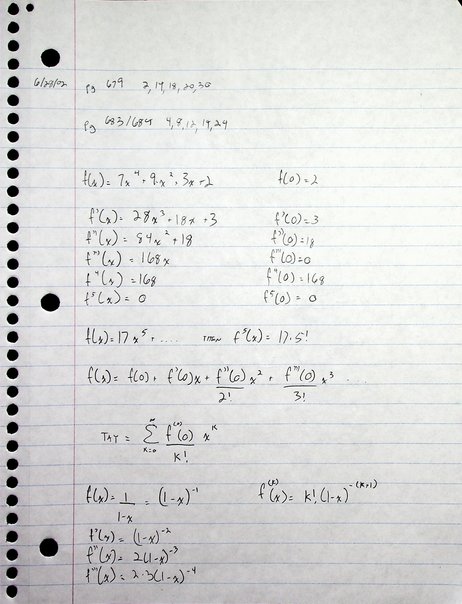 6/24/02 pg 679 2, 14, 18, 20, 30
pg 683/684 4, 8, 12, 14, 24
f(x) = 7x⁴ + 9x² + 3x + 2 f(0) = 2
f'(x) = 28x³ + 18x + 3 f'(0) = 3
f''(x) = 84x² + 18 f''(0) = 18
f'''(x) = 168x f'''(0) = 0
f⁴(x) = 168 f⁴(0) = 168
f⁵(x) = 0 f⁵(0) = 0
f(x) = 17x⁵ + .... THEN f⁵(x) = 17·5!
f(x) = f(0) + f'(0)x + f''(0)/2! x² + f'''(0)/3! x³ ...
TAY = ∞∑k=0 f⁽ᵏ⁾(0)/k! xᵏ
f(x) = 1/1-x = (1-x)⁻¹ f⁽ᵏ⁾(x) = k! (1-x)⁻⁽ᵏ⁺¹⁾
f'(x) = (1-x)⁻²
f''(x) = 2(1-x)⁻³
f'''(x) = 2·3(1-x)⁻⁴